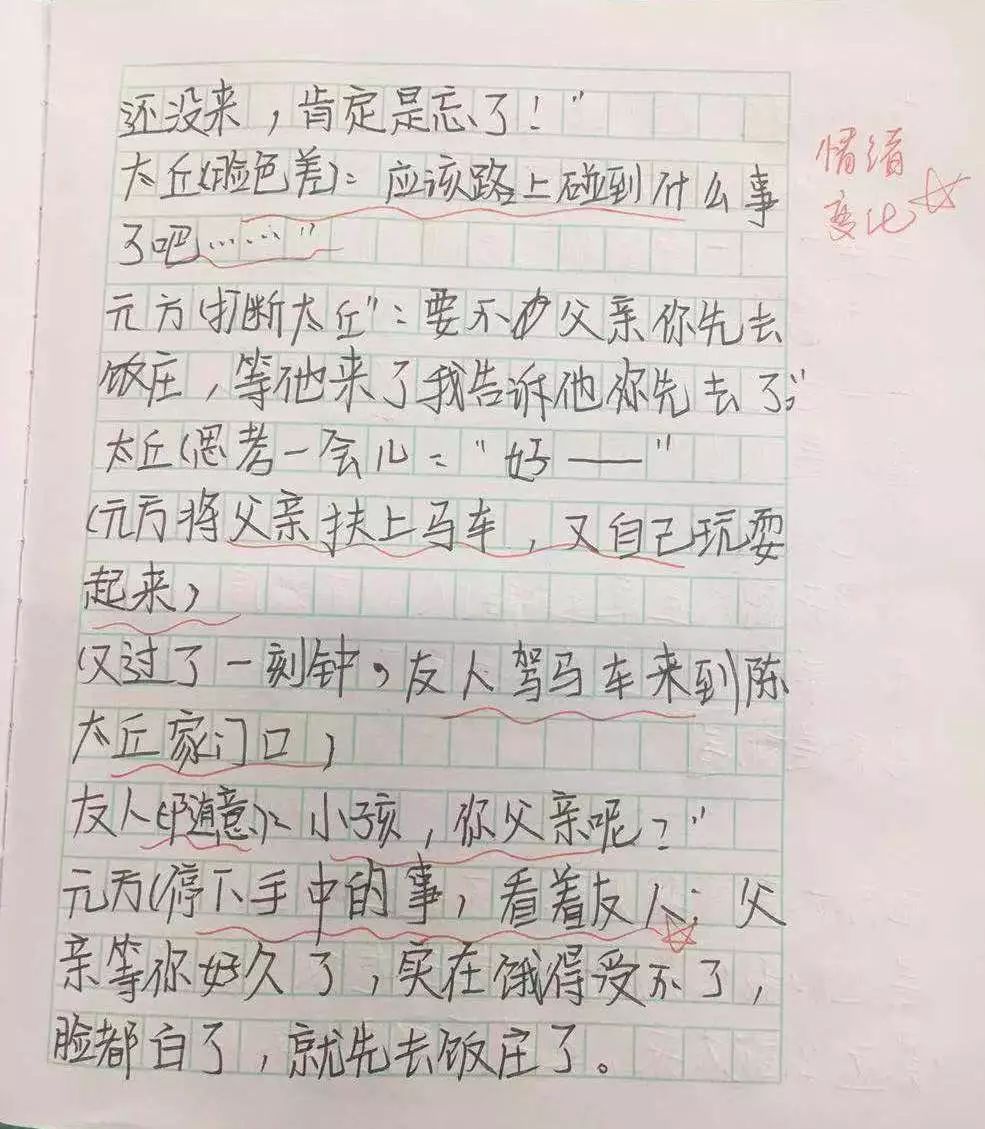 还没来，肯定是忘了！”
太丘(脸色差)：应该路上碰到什么事
了吧……”
元方(打断太丘”：要不 父亲你先去
饭庄，等他来了我告诉他你先去了。”
太丘(思考一会儿：“好——”
(元方将父亲扶上马车，又自己玩耍
起来)
(又过了一刻钟，友人驾马车来到陈
太丘家门口)
友人(随意)：小孩，你父亲呢？”
元方(停下手中的事，看着友人：父
亲等你好久了，实在饿得受不了，
脸都白了，就先去饭庄了。
情绪
变化